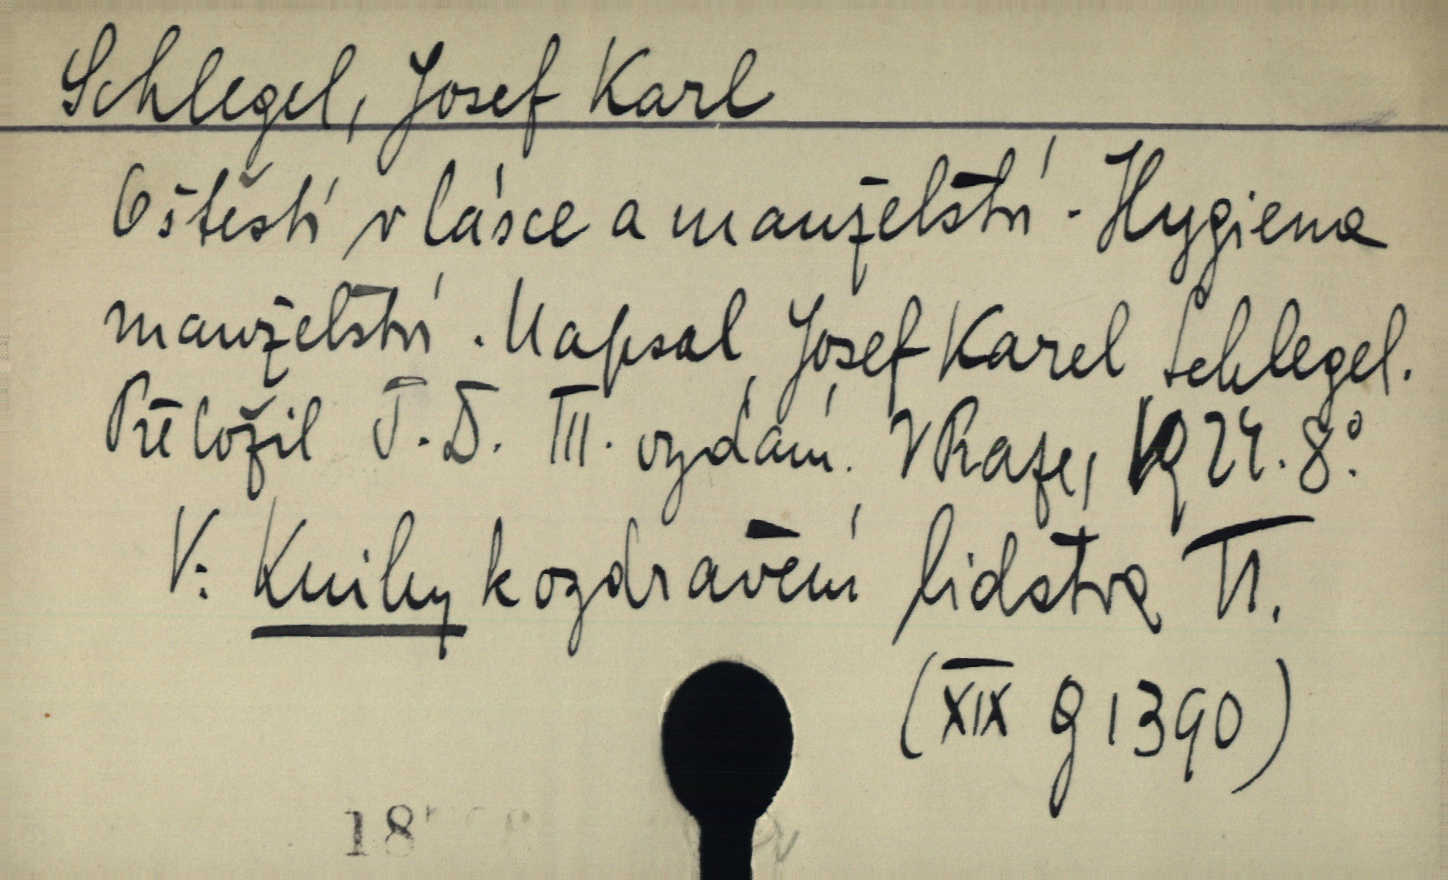 Schlegel, Josef Karl
O štěstí v lásce a manželství - Hygiena
manželství. Napsal Josef Karel Schlegel.
Přeložil T. D. III. vydání. V Praze, 1924. 8°.
V: Knihy k ozdravění lidstva VI.
(XIX g 1390)
18